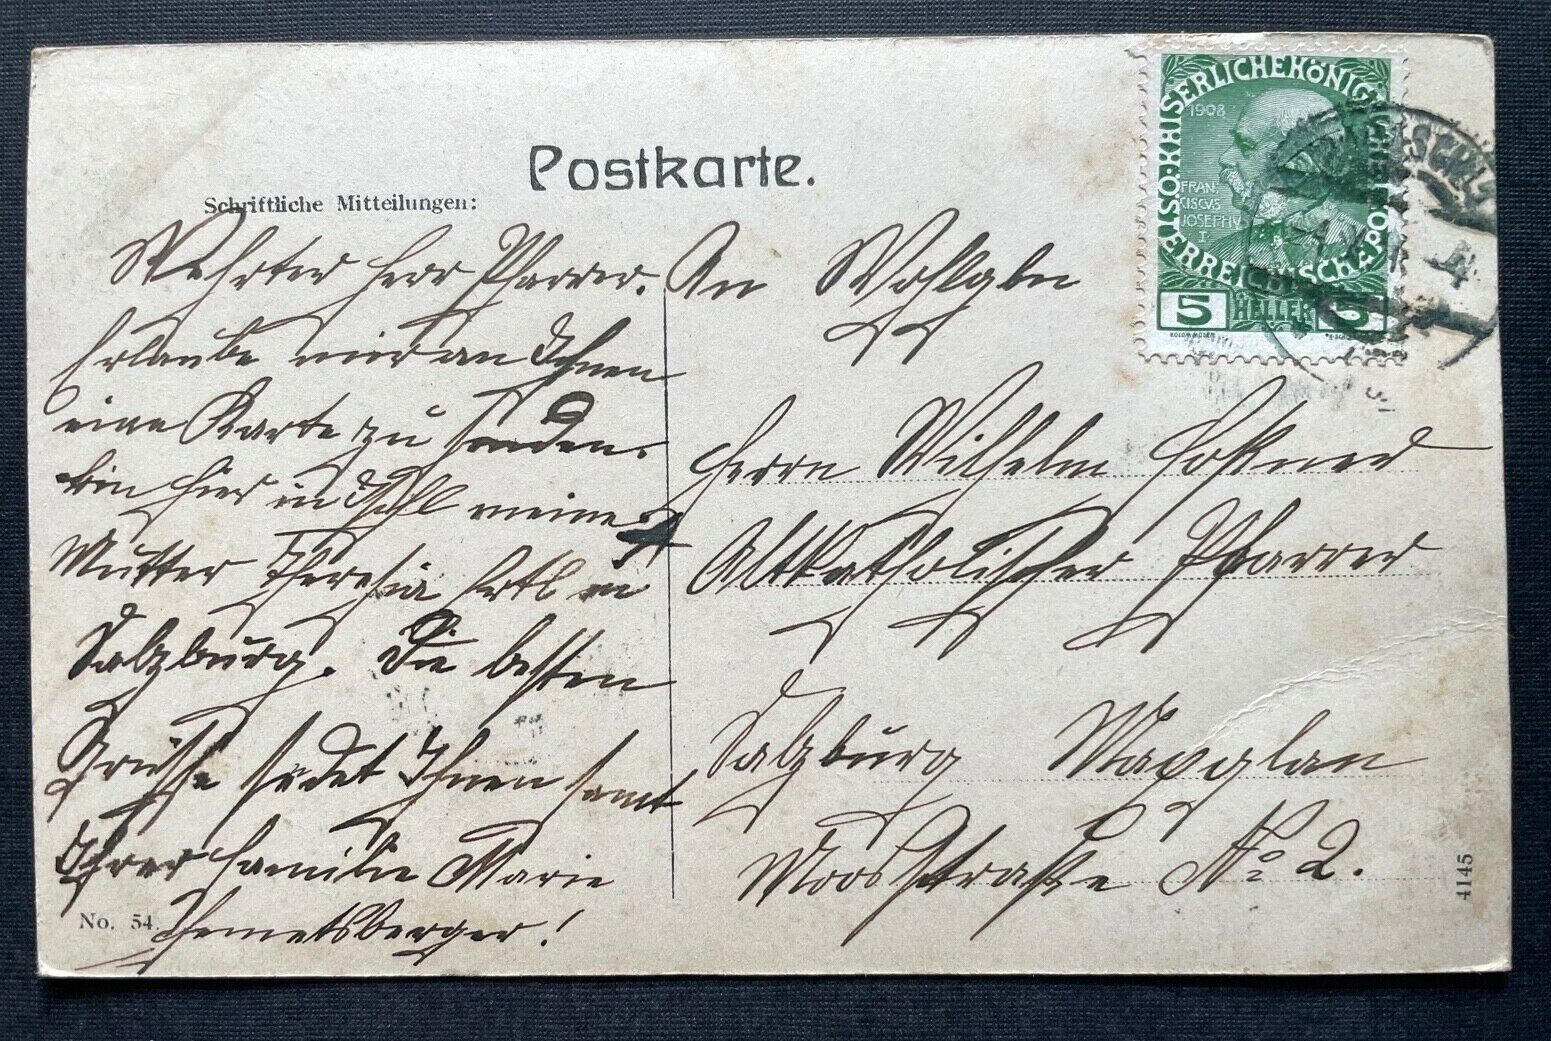 Postkarte.
Schriftliche Mitteilungen:
Wehrter Herr Pfarrer.
Erlaube mir an Ihnen
eine Karte zu senden.
bin hier in Ischl meine
Mutter Theresia Ertl in
Salzburg. Die besten
Grüsse sedet Ihnen samt
Ihrer Familie Marie
No. 54.
An Wohlgbn
Herrn Wilhelm
Altkatholischer Pfarrer
Salzburg Maxglan
Moosstraße No 2.
4145
KAISERLICHEKÖNIGL
ÖSTERREICHISCHEPO
1908
FRAN
CISCVS
IOSEPHV
I
5 HELLER 5